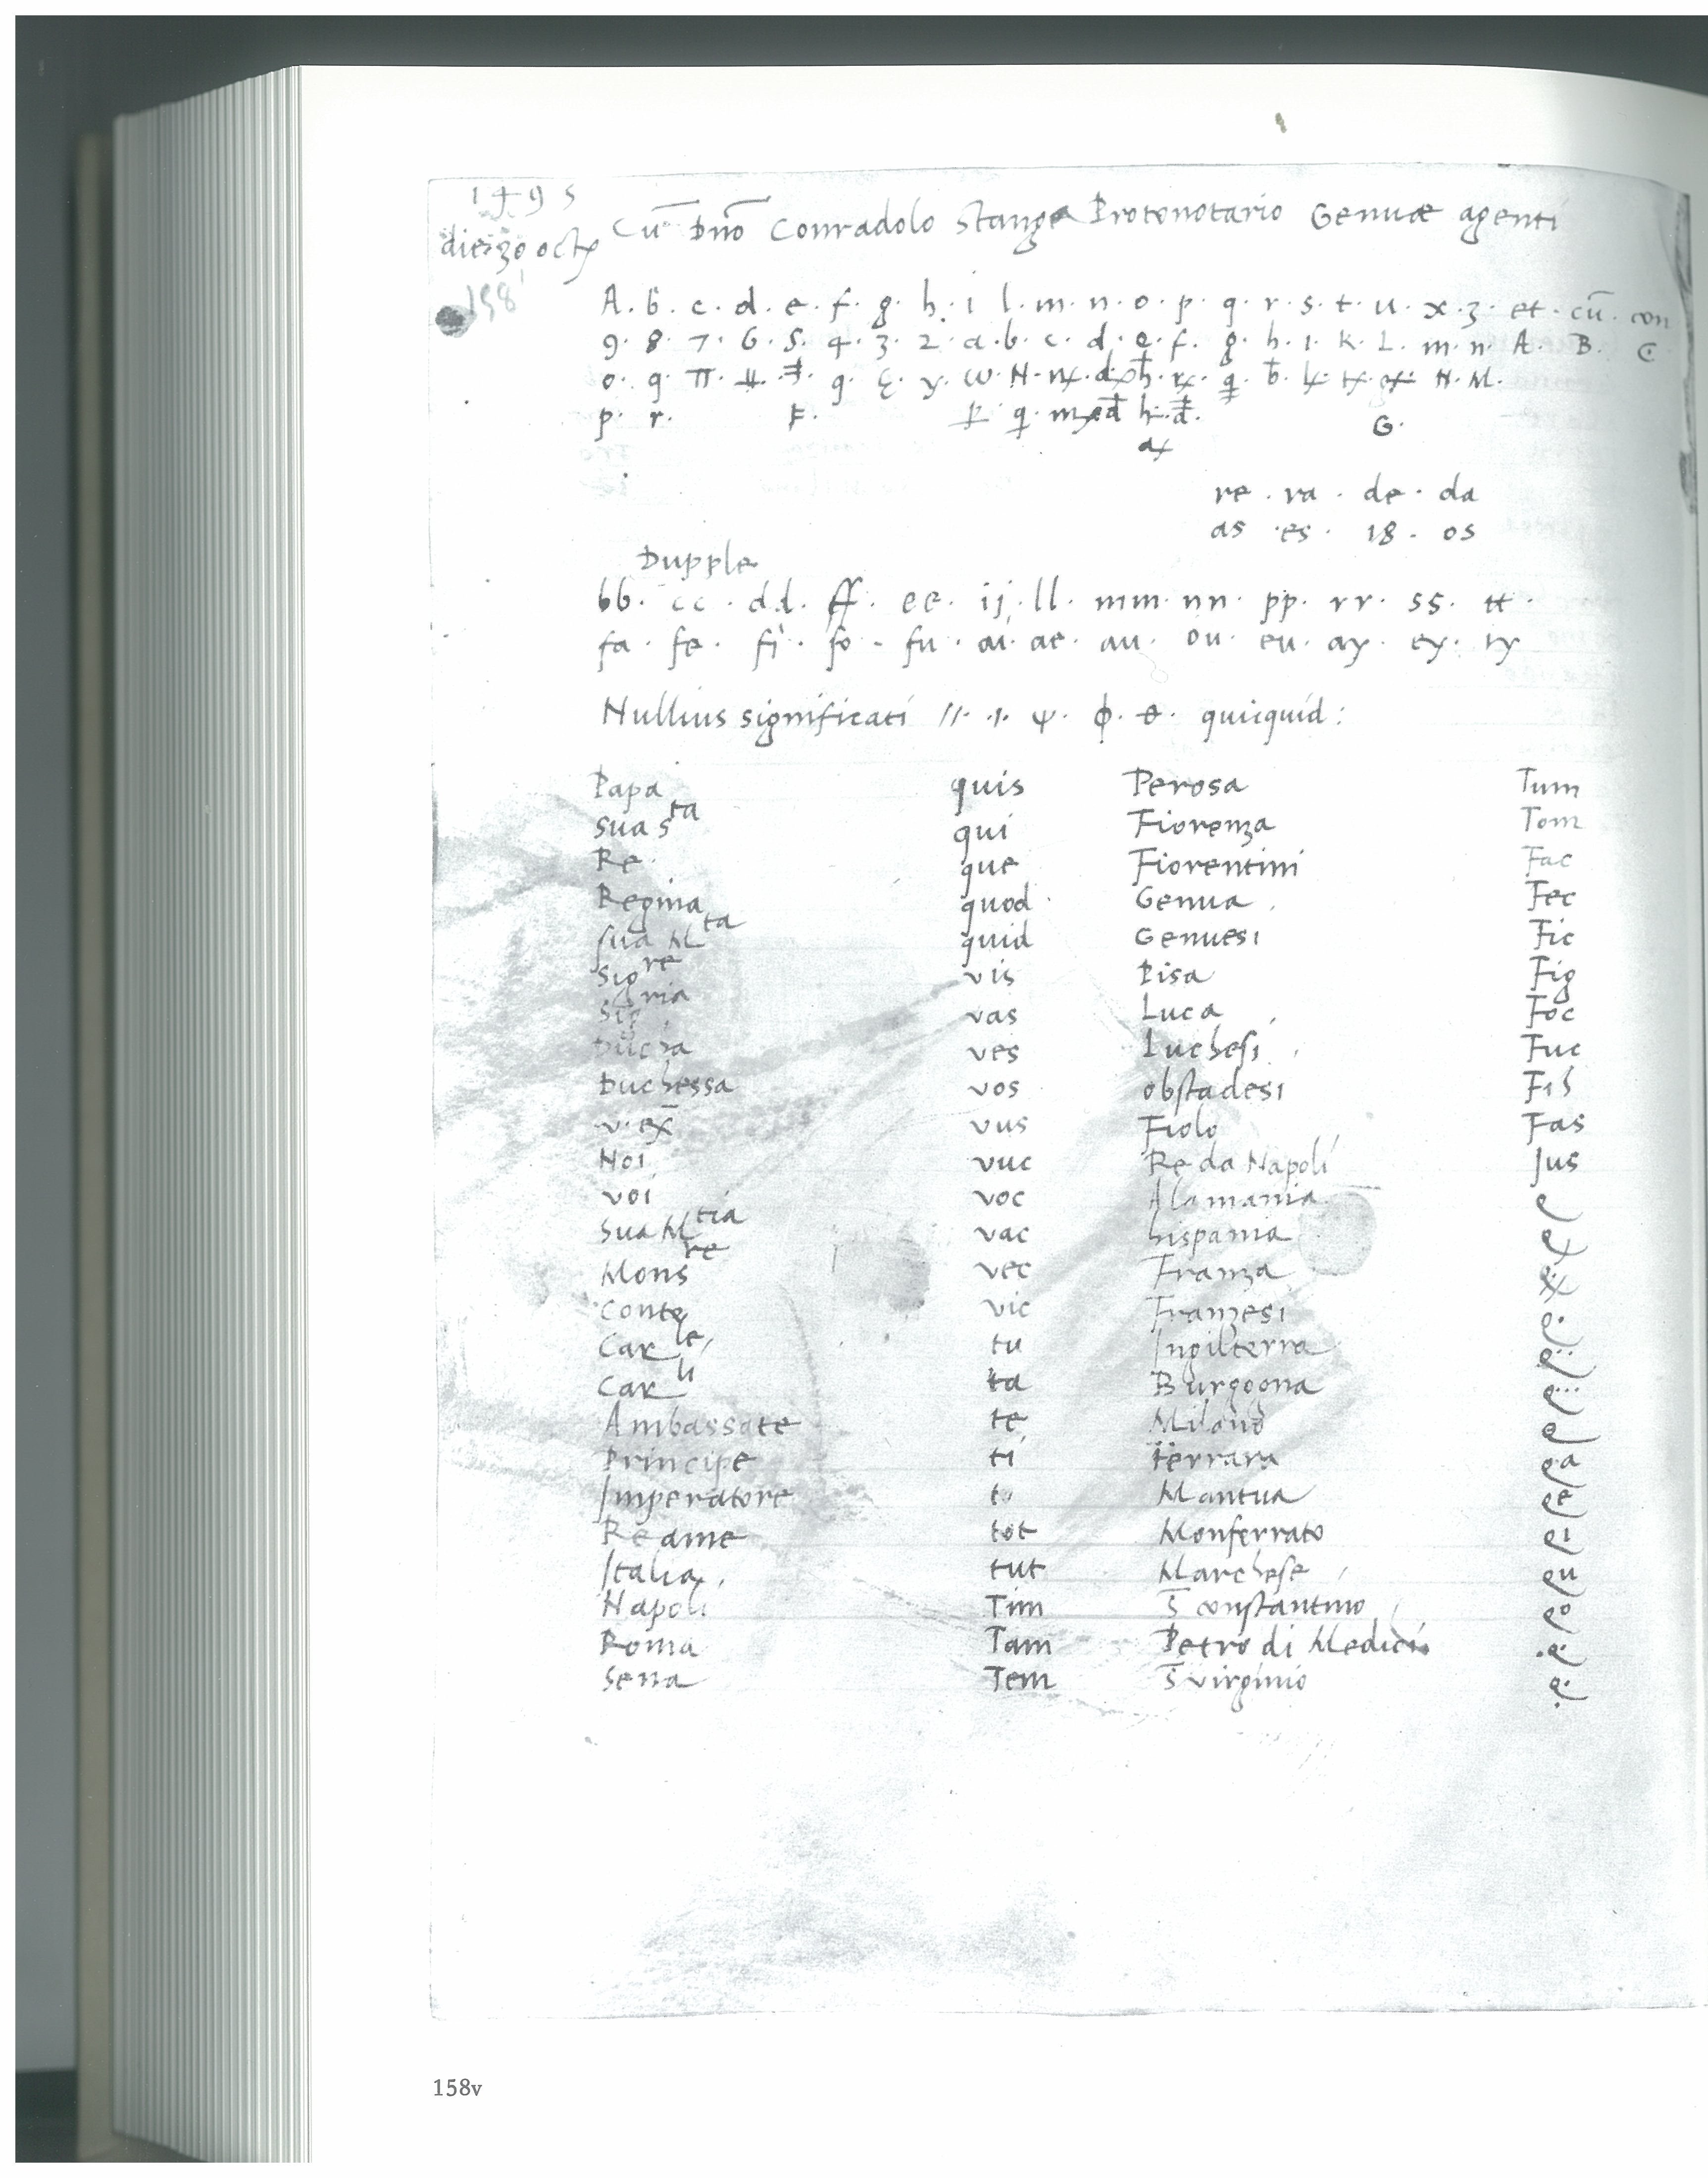 1495
die 30 octo
158
Cū Dnō Conradolo Stanga Protonotario Genuæ agenti
A. b. c. d. e. f. g. h. i. l. m. n. o. p. q. r. s. t. u. x. z. et. cū. con
9. 8. 7. 6. 5. 4. 3. 2. a. b. c. d. e. f. g. h. i. k. L. m. n. A. B. C
p. r. F.
G.
re. ra. de. da
as. es. 18. os
Dupple
bb. cc. dd. ff. ee. ij. ll. mm. nn. pp. rr. ss. tt.
fa. fe. fi. fo. fu. ai. ae. au. ou. eu. ay. ex. ix
Nullius significati //. ·/. ψ. ϕ. θ. quicquid:
Papa quis Perosa Tum
Sua Sta qui Fiorenza Tom
Re que Fiorentini Fac
Regina quod Genua Fec
Sua Mta quid Genuesi Fic
Sigre vis Pisa Fig
Sigria vas Luca Foc
ves Luchesi Fuc
Duchessa vos obstadesi Fis
v. ex̄ vus Fiolo Fas
Noi vuc Re da Napoli Jus
voi voc Alamania
Sua Mtia vac hispania
Monsre vec Franza
Conte vic Franzesi
Carle tu Ingilterra
Carli ta Burgogna
Ambassate te Milano
Principe ti Ferrara ea
Imperatore to Mantua ee
Reame tot Monferrato ei
Italia tut Marchese eu
Napoli Tim S̄ constantino eo
Roma Tam Petro di Medici
Sena Tem S̄ virginio
158v